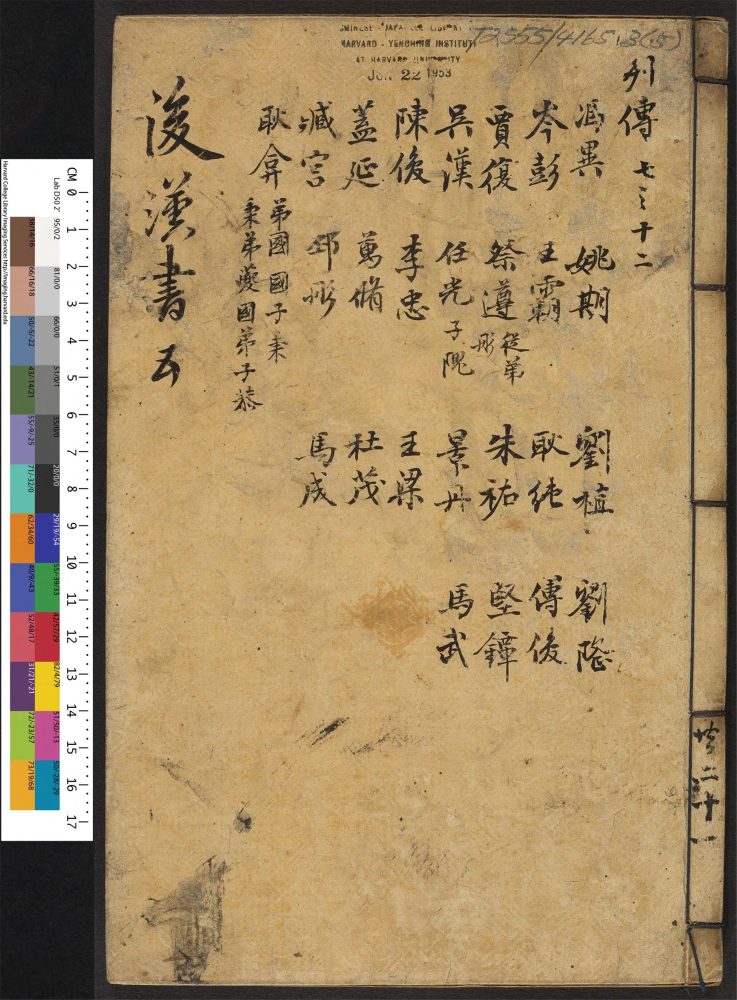 CHINESE - JAPANESE LIBRARY
HARVARD - YENCHING INSTITUTE
AT HARVARD UNIVERSITY
JUN 22 1953
T2555/4165.3(5)
列傳 七之十二
馮異 姚期 劉植 劉隆
岑彭 王霸 耿純 傅俊
賈復 祭遵 從弟肜 朱祐 堅鐔
吳漢 任光 子隗 景丹 馬武
陳俊 李忠 王梁
蓋延 萬脩 杜茂
臧宮 邳彤 馬成
耿弇 弟國 國子秉
秉弟夔 國弟子恭
後漢書 五
共二十一
CM 0 1 2 3 4 5 6 7 8 9 10 11 12 13 14 15 16 17
Harvard College Library Imaging Services